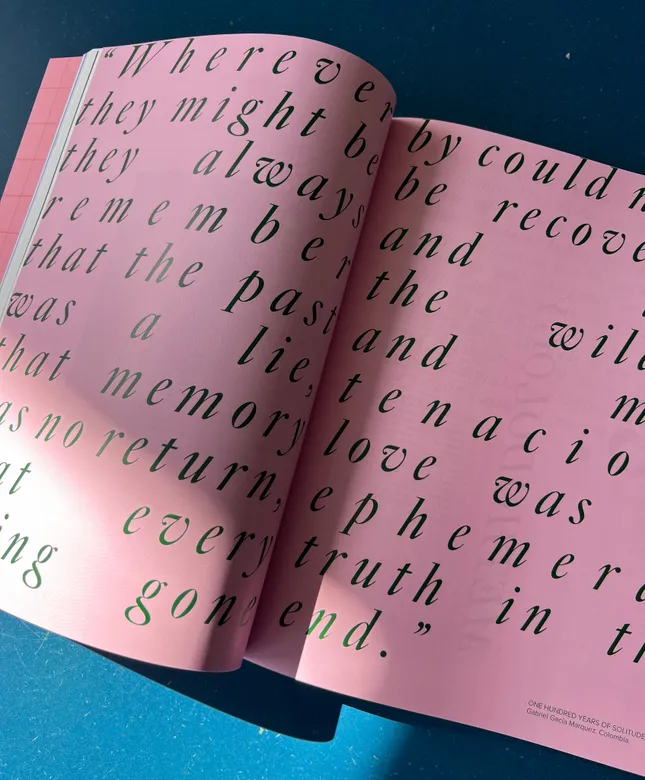 “Wherever
they might be
they always
remember
that the past
was a lie,
that memory
as no return,
at every
ing gone
by could n
be recove
and
the wil
and m
tenacio
love was
ephemer
truth in th
end.”
ONE HUNDRED YEARS OF SOLITUDE
Gabriel Gacía Marquez. Colombia